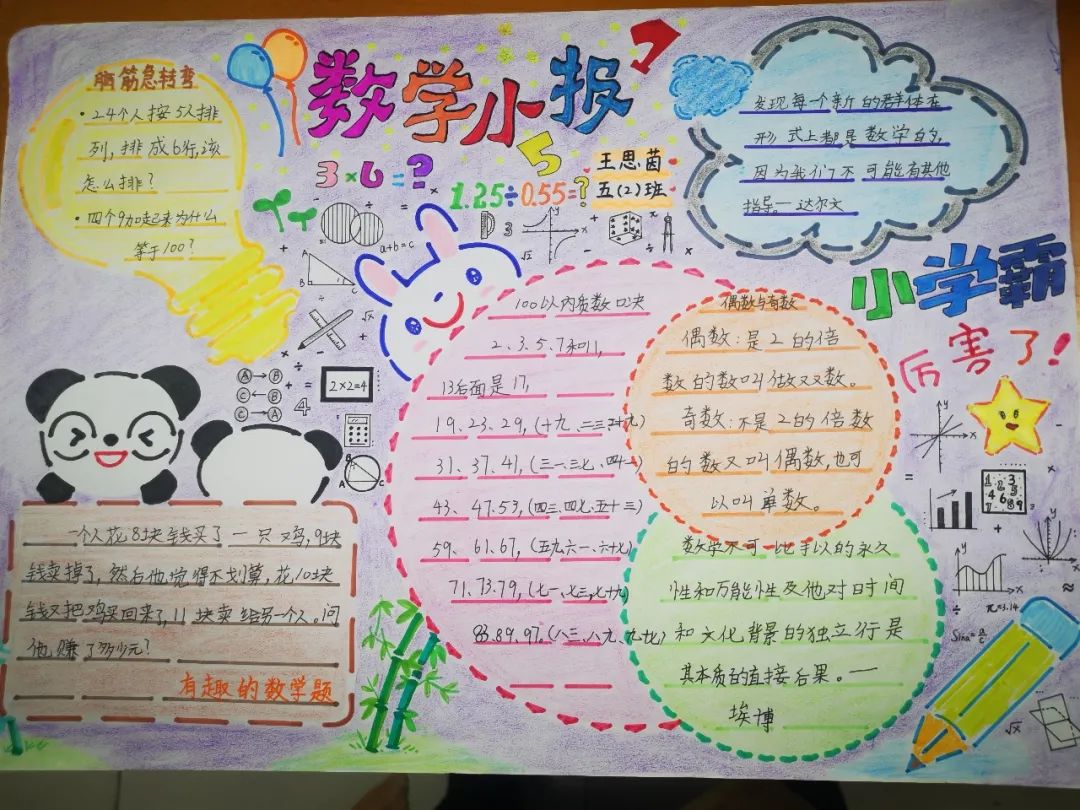 数学小报
7
5
3×6=?
1.25÷0.55=?
王思茵
五(2)班
脑筋急转弯
·24个人按5人排
列,排成6行,该
怎么排?
·四个9加起来为什么
等于100?
发现每一个新的群体在
形式上都是数学的,
因为我们不可能有其他
指导。—达尔文
小学霸
厉害了!
a+b=c
3
√x
A
B
C
÷
√x
A→B
C←B
C→A
2×2=4
4
100以内质数口决
2、3、5、7和11,
13后面是17,
19、23、29,(十九、二三、二十九)
31、37、41,(三一、三七、四十一)
43、47、53,(四三、四七、五十三)
59、61、67,(五九、六一、六十七)
71、73、79,(七一、七三、七十九)
83、89、97。(八三、八九、九七)
偶数与奇数
偶数:是2的倍
数的数叫做双数。
奇数:不是2的倍数
的数又叫偶数,也可
以叫单数。
数学不可比手以的永久
性和万能性及他对日时间
和文化背景的独立行是
其本质的直接后果。——
埃博
一个人花8块钱买了一只鸡,9块
钱卖掉了,然后他觉得不划算,花10块
钱又把鸡买回来了,11块卖给另一个人。问
他赚了多少元?
有趣的数学题
π=3.14
Sina=a/c
√x